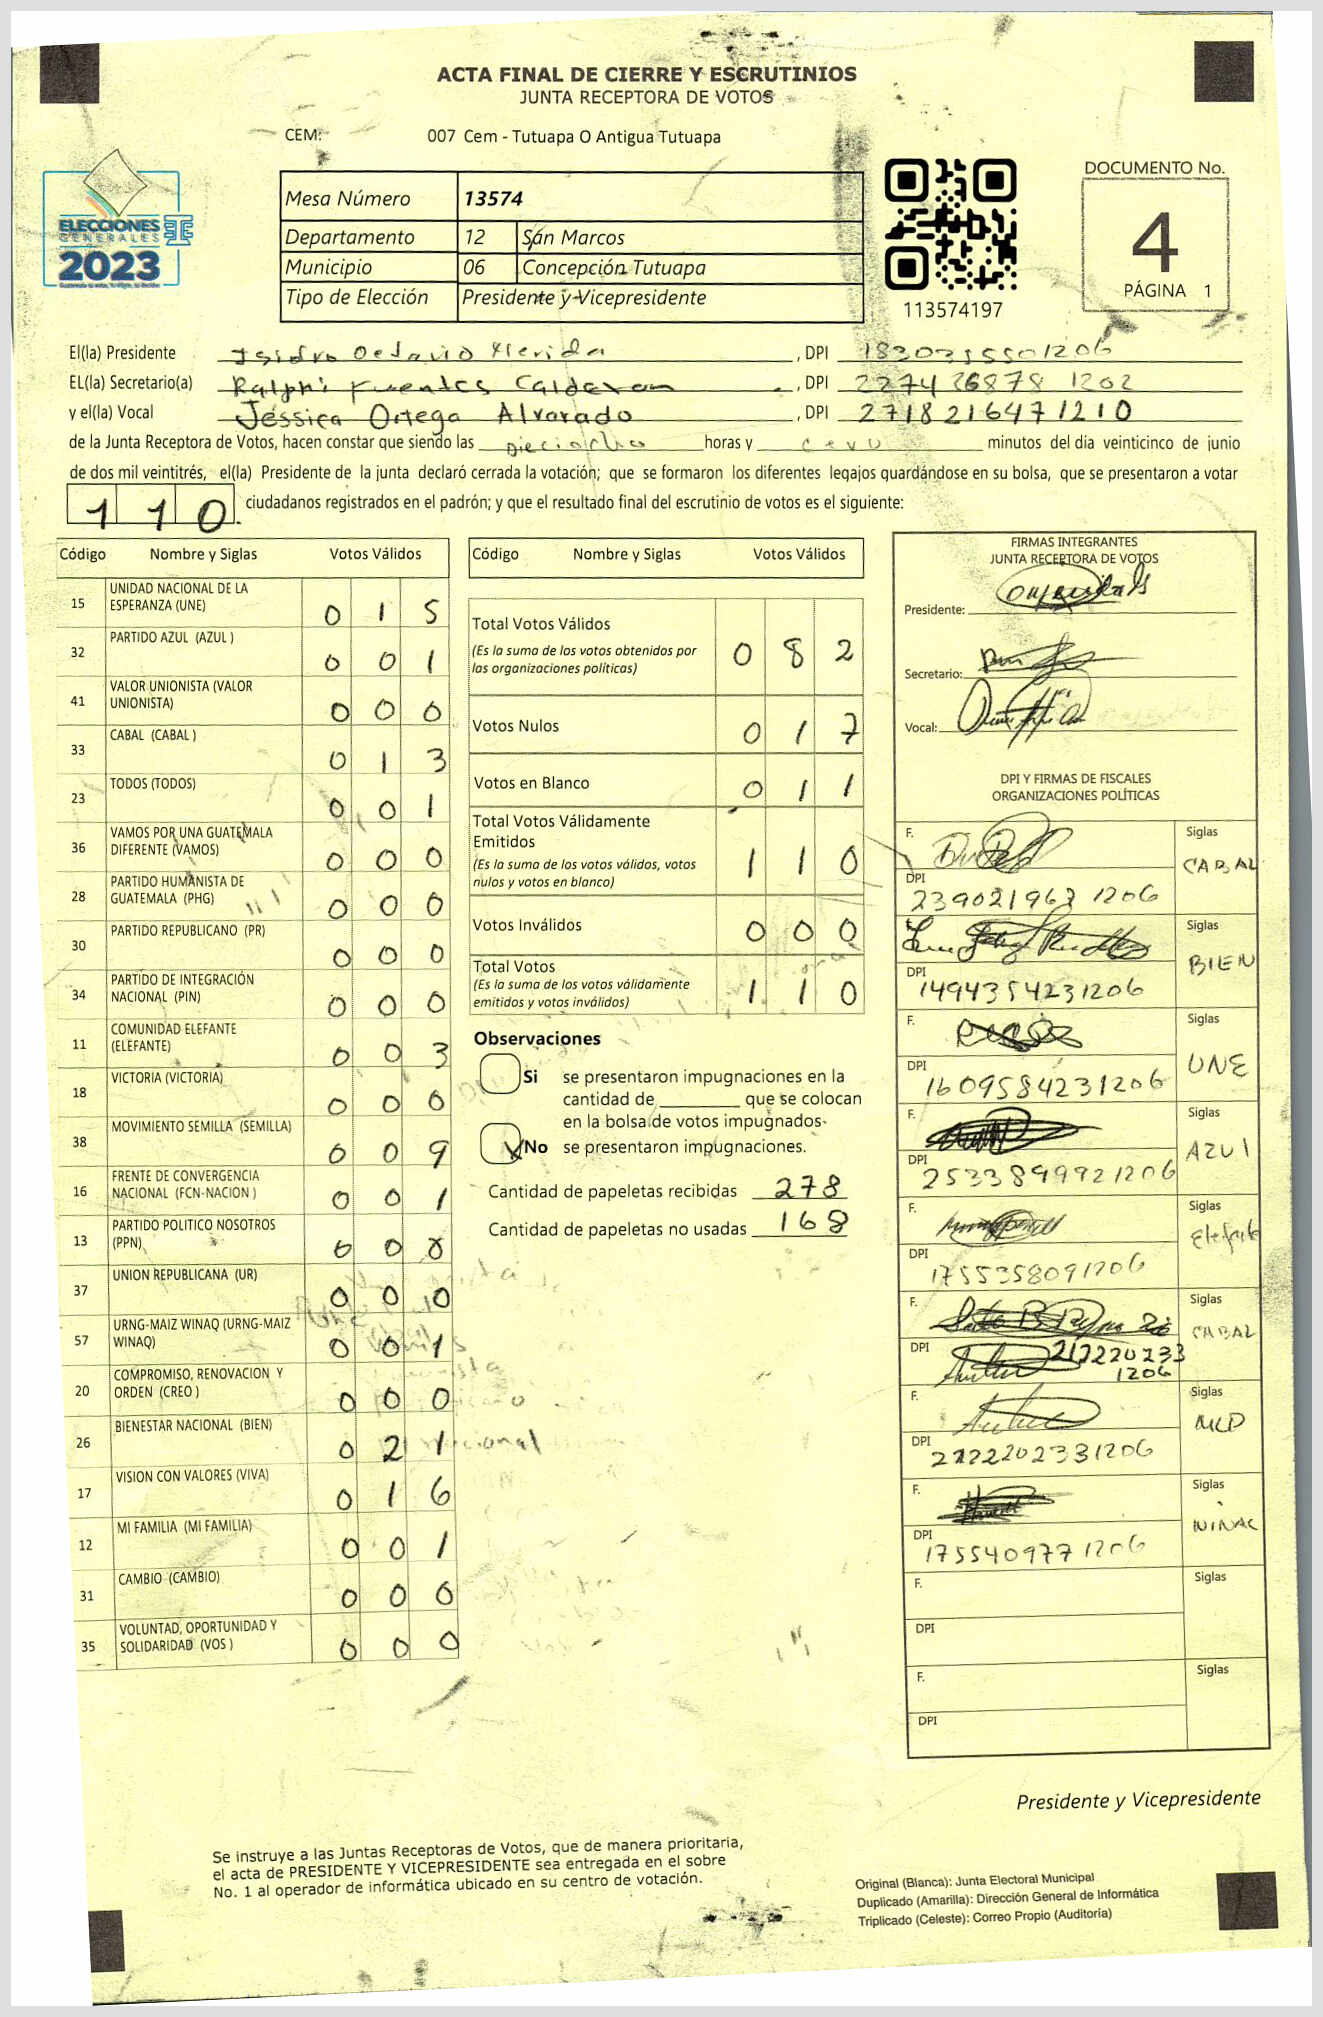 ACTA FINAL DE CIERRE Y ESCRUTINIOS
JUNTA RECEPTORA DE VOTOS
CEM: 007 Cem - Tutuapa O Antigua Tutuapa
ELECCIONES
GENERALES
2023
Mesa Número 13574
Departamento 12 San Marcos
Municipio 06 Concepción Tutuapa
Tipo de Elección Presidente y Vicepresidente
113574197
DOCUMENTO No.
4
PÁGINA 1
El(la) Presidente Isidro Octavio Merida , DPI 1830355501206
EL(la) Secretario(a) Ralphi Fuentes Calderon , DPI 2274 26878 1202
y el(la) Vocal Jessica Ortega Alvarado , DPI 2718216471210
de la Junta Receptora de Votos, hacen constar que siendo las Dieciocho horas y cero minutos del día veinticinco de junio
de dos mil veintitrés, el(la) Presidente de la junta declaró cerrada la votación; que se formaron los diferentes legajos guardándose en su bolsa, que se presentaron a votar
110 ciudadanos registrados en el padrón; y que el resultado final del escrutinio de votos es el siguiente:
Código Nombre y Siglas Votos Válidos
15 UNIDAD NACIONAL DE LA ESPERANZA (UNE) 0 1 5
32 PARTIDO AZUL (AZUL ) 0 0 1
41 VALOR UNIONISTA (VALOR UNIONISTA) 0 0 0
33 CABAL (CABAL ) 0 1 3
23 TODOS (TODOS) 0 0 1
36 VAMOS POR UNA GUATEMALA DIFERENTE (VAMOS) 0 0 0
28 PARTIDO HUMANISTA DE GUATEMALA (PHG) 0 0 0
30 PARTIDO REPUBLICANO (PR) 0 0 0
34 PARTIDO DE INTEGRACIÓN NACIONAL (PIN) 0 0 0
11 COMUNIDAD ELEFANTE (ELEFANTE) 0 0 3
18 VICTORIA (VICTORIA) 0 0 0
38 MOVIMIENTO SEMILLA (SEMILLA) 0 0 9
16 FRENTE DE CONVERGENCIA NACIONAL (FCN-NACION ) 0 0 1
13 PARTIDO POLITICO NOSOTROS (PPN) 0 0 0
37 UNION REPUBLICANA (UR) 0 0 0
57 URNG-MAIZ WINAQ (URNG-MAIZ WINAQ) 0 0 1
20 COMPROMISO, RENOVACION Y ORDEN (CREO ) 0 0 0
26 BIENESTAR NACIONAL (BIEN) 0 2 1
17 VISION CON VALORES (VIVA) 0 1 6
12 MI FAMILIA (MI FAMILIA) 0 0 1
31 CAMBIO (CAMBIO) 0 0 0
35 VOLUNTAD, OPORTUNIDAD Y SOLIDARIDAD (VOS ) 0 0 0
Código Nombre y Siglas Votos Válidos
Total Votos Válidos 0 8 2
(Es la suma de los votos obtenidos por
las organizaciones políticas)
Votos Nulos 0 1 7
Votos en Blanco 0 1 1
Total Votos Válidamente
Emitidos 1 1 0
(Es la suma de los votos válidos, votos
nulos y votos en blanco)
Votos Inválidos 0 0 0
Total Votos 1 1 0
(Es la suma de los votos válidamente
emitidos y votos inválidos)
Observaciones
Si se presentaron impugnaciones en la
cantidad de ________ que se colocan
en la bolsa de votos impugnados
No se presentaron impugnaciones.
Cantidad de papeletas recibidas 278
Cantidad de papeletas no usadas 168
FIRMAS INTEGRANTES
JUNTA RECEPTORA DE VOTOS
Presidente:
Secretario:
Vocal:
DPI Y FIRMAS DE FISCALES
ORGANIZACIONES POLÍTICAS
F. Siglas CABAL
DPI 239021963 1206
F. Siglas BIEN
DPI 1494354231206
F. Siglas UNE
DPI 1609584231206
F. Siglas AZUL
DPI 2533899921206
F. Siglas Elefante
DPI 1755358091206
F. Siglas CABAL
DPI 212220233
1206
F. Siglas MLP
DPI 2122202331206
F. Siglas WINAC
DPI 175540977 1206
F. Siglas
DPI
F. Siglas
DPI
Presidente y Vicepresidente
Se instruye a las Juntas Receptoras de Votos, que de manera prioritaria,
el acta de PRESIDENTE Y VICEPRESIDENTE sea entregada en el sobre
No. 1 al operador de informática ubicado en su centro de votación.
Original (Blanca): Junta Electoral Municipal
Duplicado (Amarilla): Dirección General de Informática
Triplicado (Celeste): Correo Propio (Auditoría)